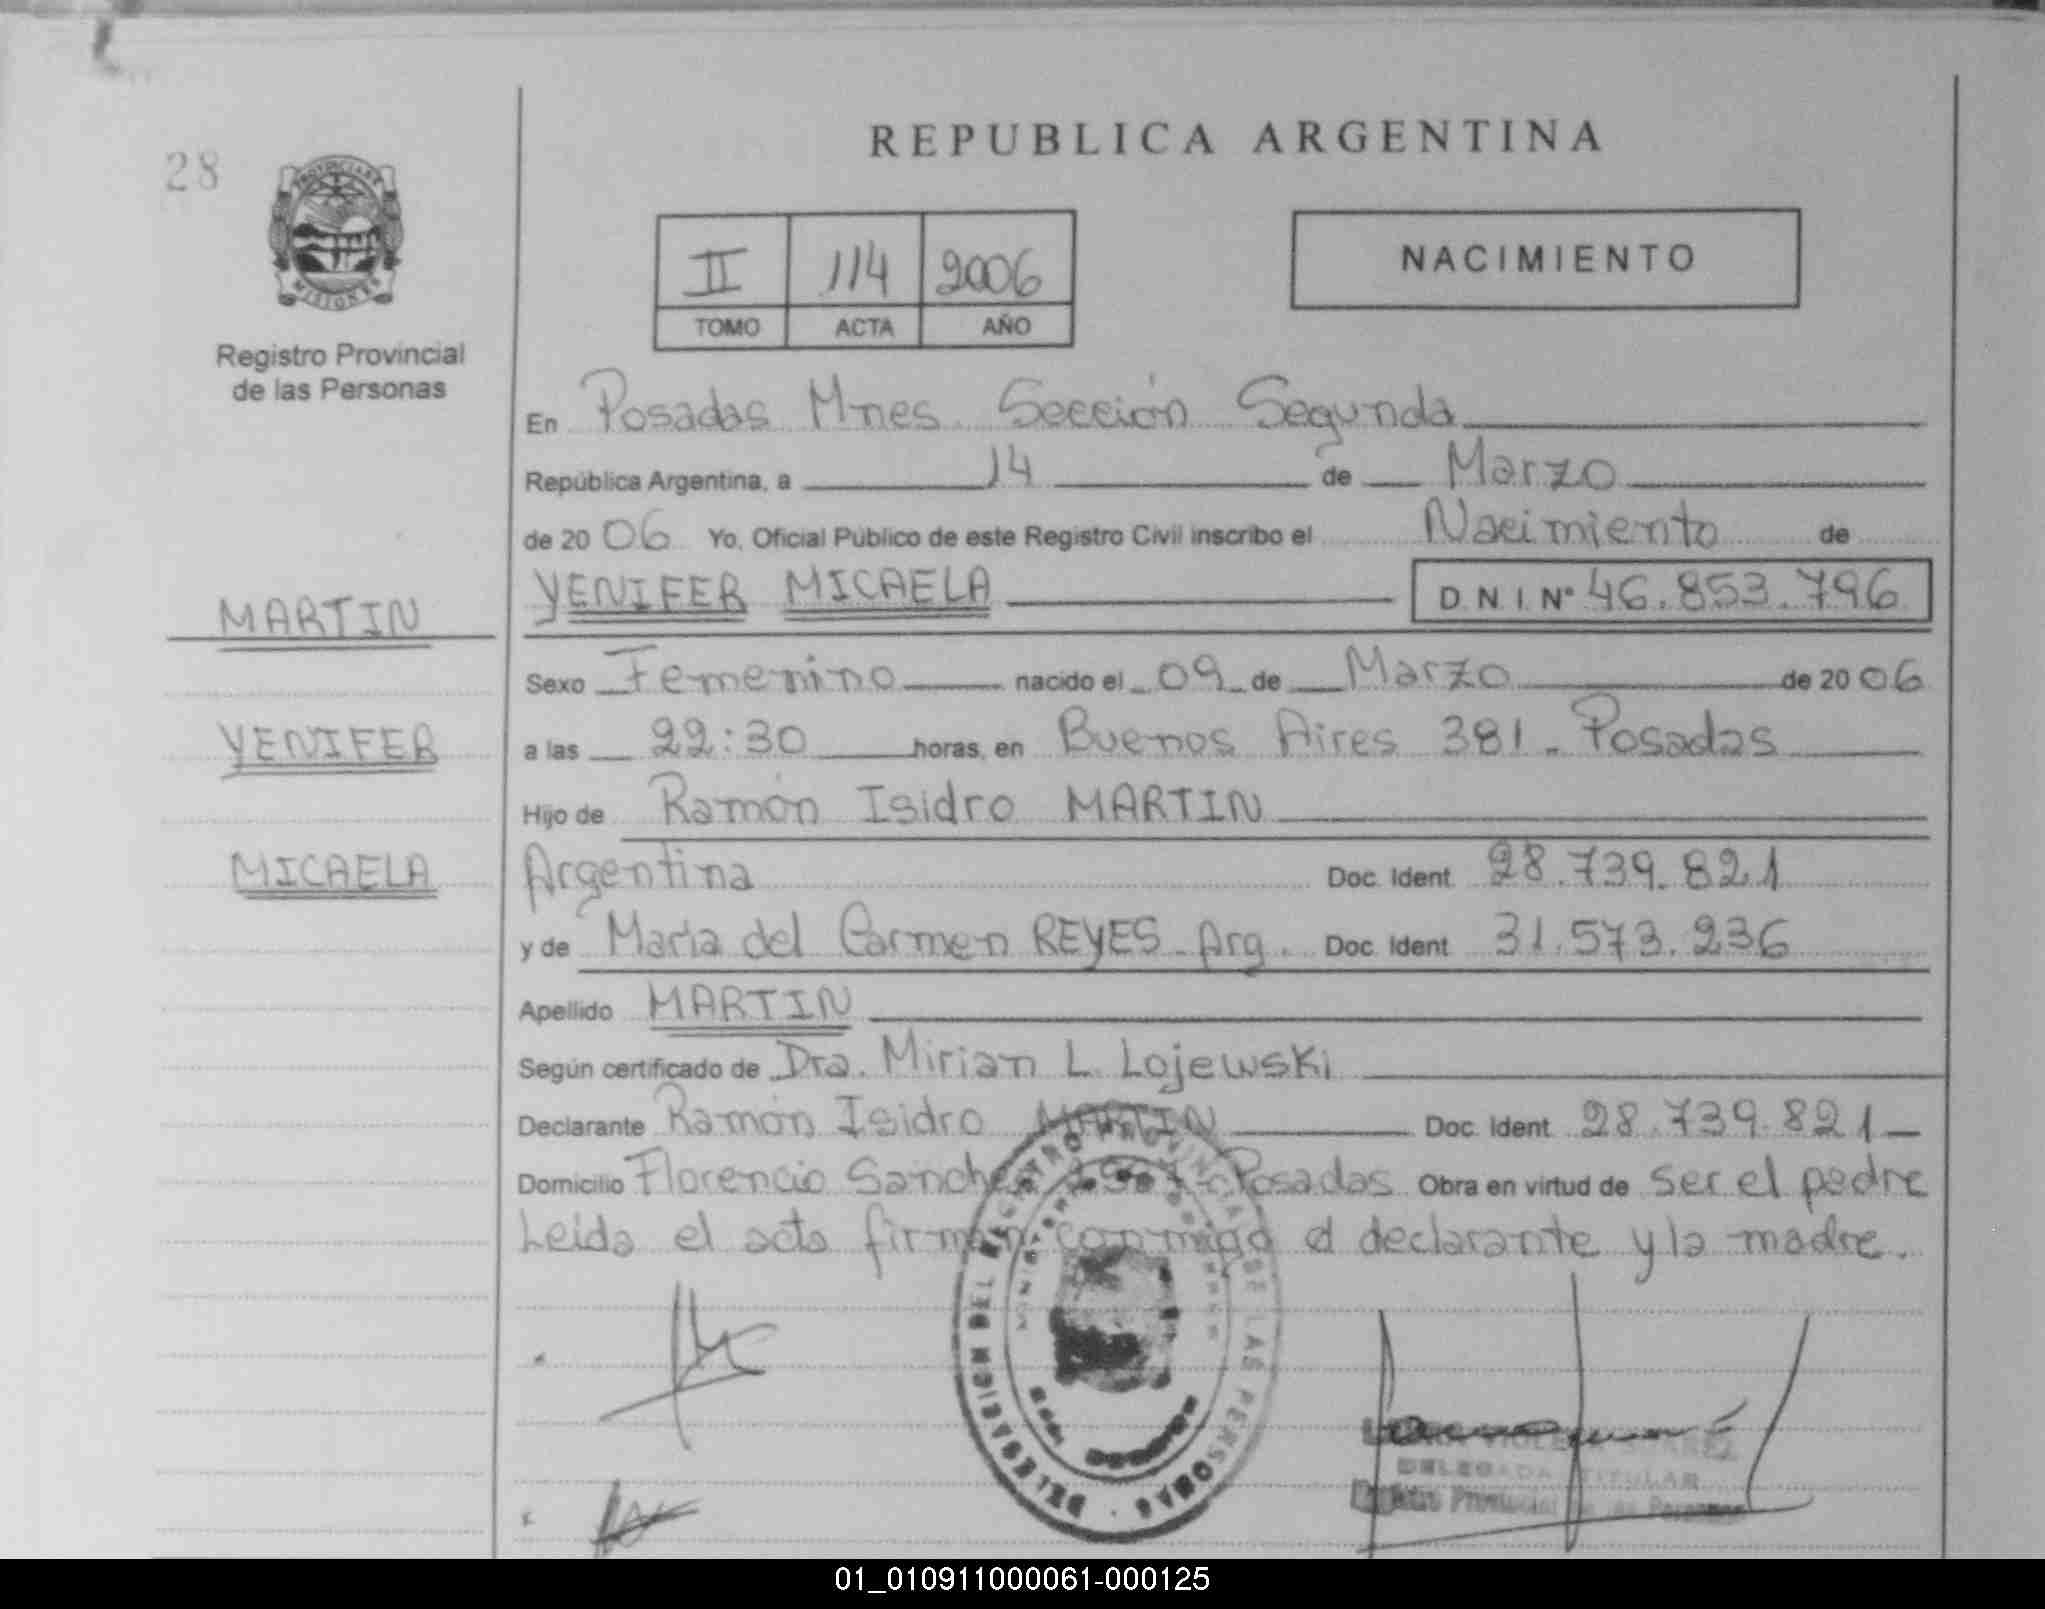 REPUBLICA ARGENTINA
28
PROVINCIA DE
MISIONES
Registro Provincial
de las Personas
II 114 2006
TOMO ACTA AÑO
NACIMIENTO
En Posadas Mnes. Sección Segunda
República Argentina, a 14 de Marzo
de 20 06 Yo, Oficial Público de este Registro Civil inscribo el Nacimiento de
MARTIN
YENIFER MICAELA D.N.I. Nº 46.853.796
Sexo Femenino nacido el 09 de Marzo de 20 06
YENIFER
a las 22:30 horas, en Buenos Aires 381 - Posadas
Hijo de Ramón Isidro MARTIN
MICAELA
Argentina Doc. Ident. 28.739.821
y de María del Carmen REYES - Arg. Doc. Ident. 31.573.236
Apellido MARTIN
Según certificado de Dra. Mirian L. Lojewski
Declarante Ramón Isidro MARTIN Doc. Ident. 28.739.821
Domicilio Florencio Sanchez Posadas Obra en virtud de ser el padre
Leída el acta firman conmigo el declarante y la madre.
DELEGACION DEL REGISTRO PROVINCIAL DE LAS PERSONAS
DELEGADA TITULAR
Registro Provincial de las Personas
01_010911000061-000125